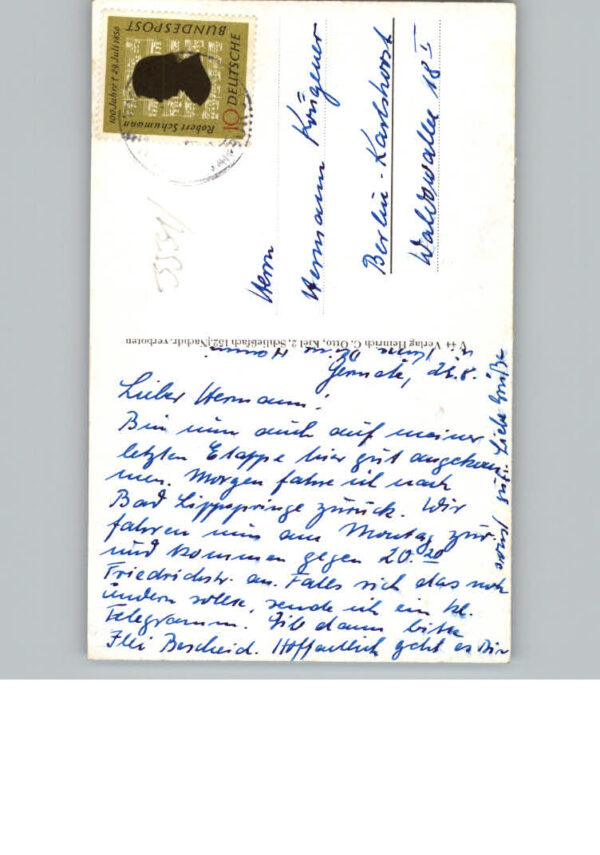 Gernrode, 28.8.
Lieber Hermann!
Bin nun auch auf meiner
letzten Etappe hier gut angekom-
men. Morgen fahre ich nach
Bad Lippspringe zurück. Wir
fahren nun am Montag zur.
und kommen gegen 20.20
Friedrichstr. an. Falls sich das noch
ändern sollte, sende ich ein
Telegramm. Gib dann bitte
Bescheid. Hoffentlich geht es Dir
sonst gut. Liebe Grüße
V 44 Verlag Heinrich C. Otto, Kiel 2, Schließfach 152, Nachdr. verboten
Herrn
Hermann Krügener
Berlin-Karlshorst
Waldowallee 18 I
100 Jahre † 29. Juli 1856
Robert Schumann
10 DEUTSCHE
BUNDESPOST